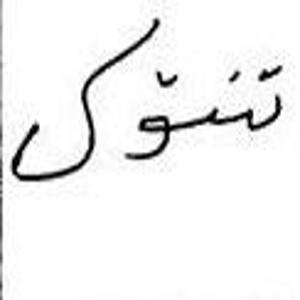 تنۆک